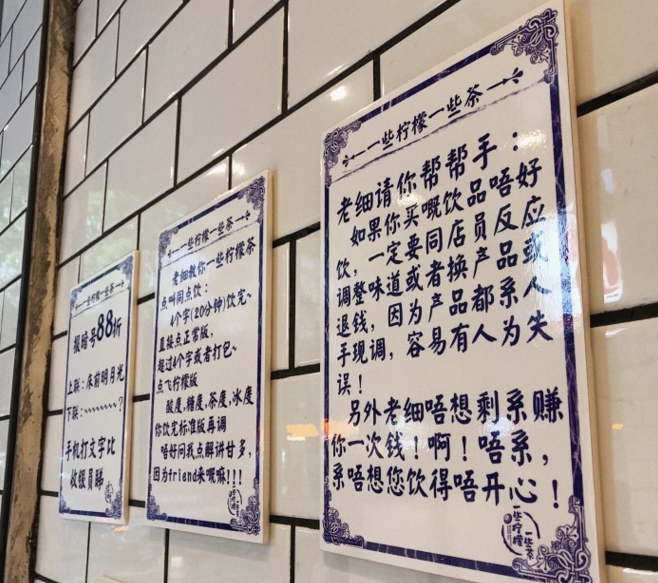 一些柠檬一些茶
报暗号88折
上联:床前明月光
下联:~~~~~~~?
手机打文字比
收银员睇
一些柠檬一些茶
老细教你一些柠檬茶
点叫同点饮:
4个字(20分钟)饮完~
直接点正常版,
超过4个字或者打包~
点飞柠檬版
酸度,糖度,茶度,冰度
你饮完标准版再调
唔好问我点解讲甘多,
因为friend来嘅嘛!!!
一些柠檬一些茶
老细请你帮帮手:
如果你买嘅饮品唔好
饮,一定要同店员反应
调整味道或者换产品或
退钱,因为产品都系人
手现调,容易有人为失
误!
另外老细唔想剩系赚
你一次钱!啊!唔系,
系唔想您饮得唔开心!
一些柠檬
一些茶